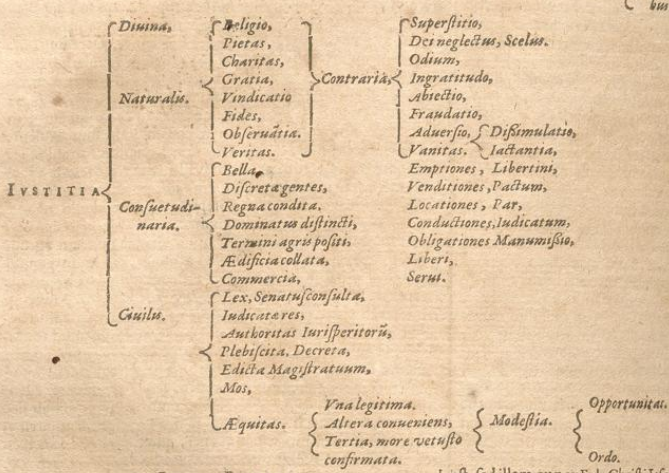 bui
Diuina,
Religio,
Pietas,
Charitas,
Gratia,
Naturalis.
Vindicatio
Fides,
Obseruãtia.
Veritas.
Contraria,
Superſtitio,
Dei neglectus, Scelus.
Odium,
Ingratitudo,
Abiectio,
Fraudatio,
Aduerſio,
Vanitas.
Diſsimulatio,
Iactantia,
IVSTITIA
Conſuetudi-
naria.
Bella,
Diſcretæ gentes,
Regna condita.
Dominatus diſtincti,
Termini agris poſiti,
Ædificia collata,
Commercia,
Emptiones, Libertini,
Venditiones, Pactum,
Locationes, Par,
Conductiones, Iudicatum,
Obligationes Manumiſsio,
Liberi,
Serui.
Ciuilis.
Lex, Senatuſconſulta,
Iudicatæ res,
Authoritas Iuriſperitorũ,
Plebiſcita, Decreta,
Edicta Magiſtratuum,
Mos,
Æquitas.
Vna legitima.
Altera conueniens,
Tertia, more vetuſto
confirmata.
Modeſtia.
Opportunitas.
Ordo.